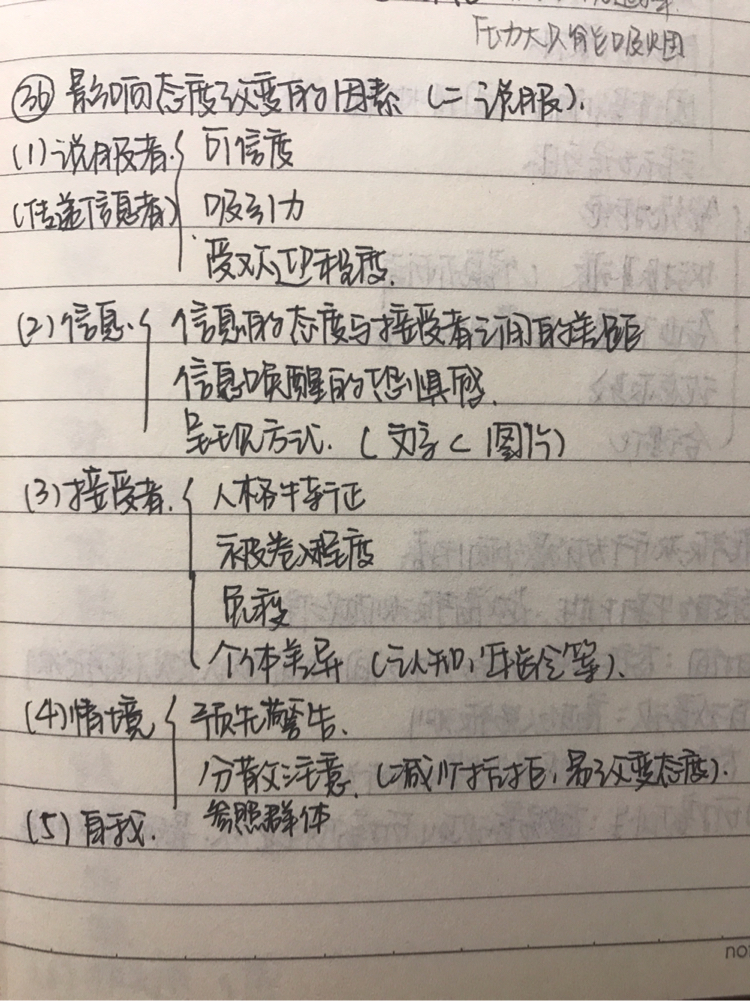 压力大只能吸烟
㊱ 影响态度改变的因素 (=说服).
(1)说服者. { 可信度
(传递信息者) 吸引力
受欢迎程度.
(2)信息. { 信息的态度与接受者之间的差距
信息唤醒的恐惧感.
呈现方式. (文字<图片)
(3)接受者. { 人格特征
被卷入程度
免疫
个体差异 (认知,年龄等).
(4)情境 { 预先警告.
分散注意. (减少抗拒,易改变态度).
(5)自我. 参照群体
no